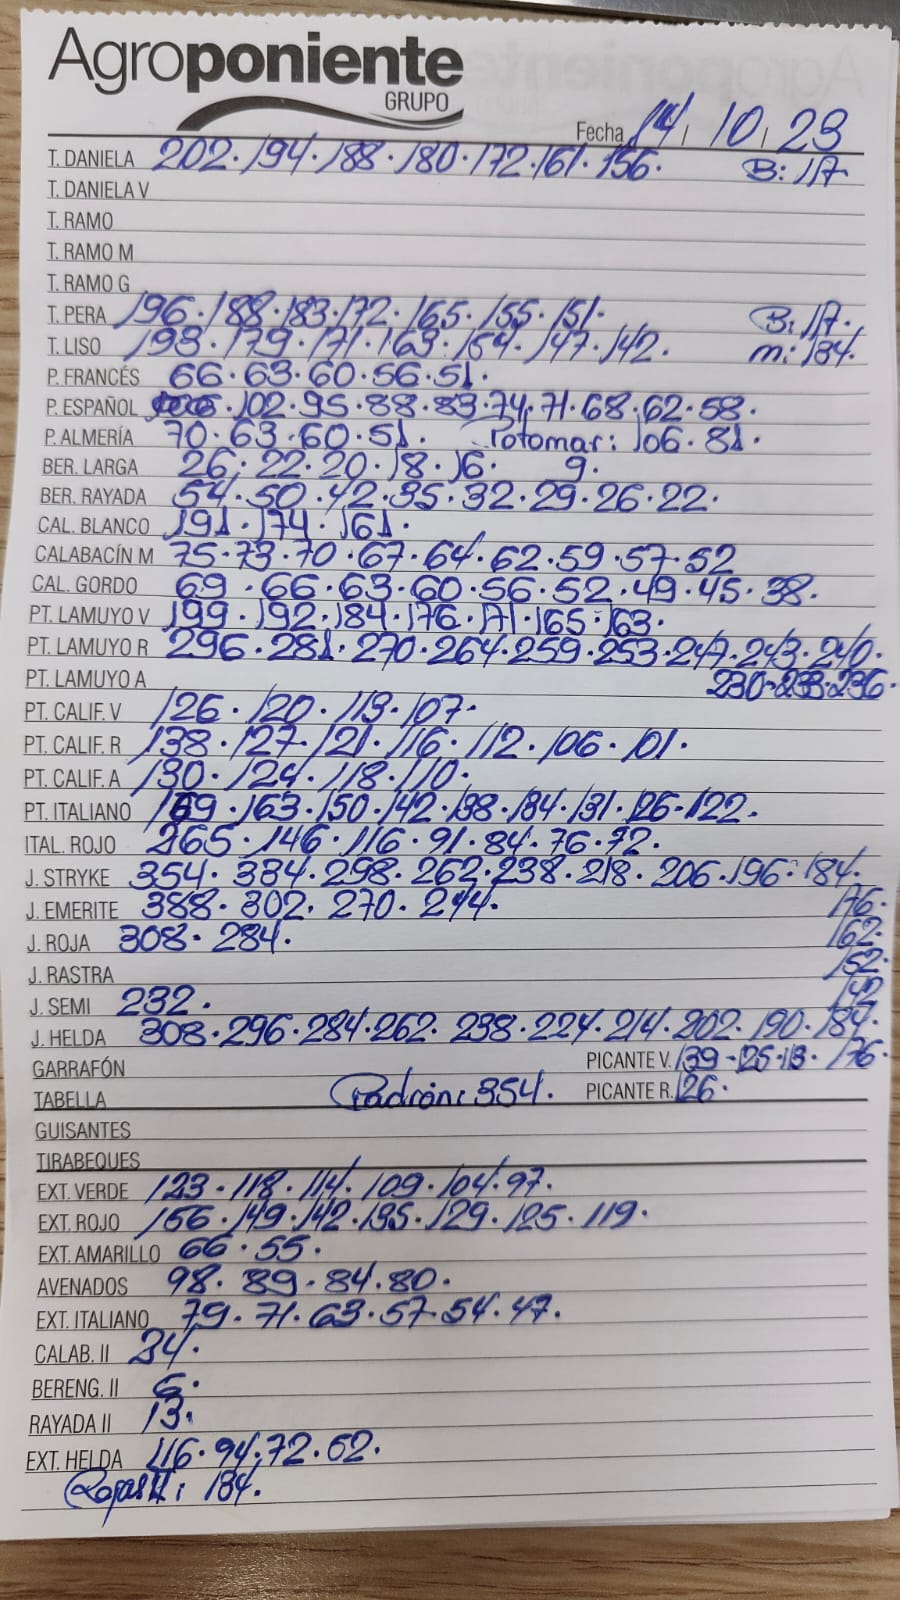 Agroponiente
GRUPO
Fecha 14 / 10 / 23
T. DANIELA 202. 194. 188. 180. 172. 161. 156. B: 117
T. DANELA V
T. RAMO
T. RAMO M
T. RAMO G
T. PERA 196. 188. 183. 172. 165. 155. 151. B: 117.
T. LISO 198. 179. 171. 163. 154. 147. 142. m: 184.
P. FRANCÉS 66. 63. 60. 56. 51.
P. ESPAÑOL 102. 95. 88. 83. 74. 71. 68. 62. 58.
P. ALMERÍA 70. 63. 60. 51. Potomar: 106. 81.
BER. LARGA 26. 22. 20. 18. 16. 9.
BER. RAYADA 54. 50. 42. 35. 32. 29. 26. 22.
CAL. BLANCO 191. 174. 161.
CALABACÍN M 75. 73. 70. 67. 64. 62. 59. 57. 52
CAL. GORDO 69. 66. 63. 60. 56. 52. 49. 45. 38.
PT. LAMUYO V 199. 192. 184. 176. 171. 165. 163.
PT. LAMUYO R 296. 281. 270. 264. 259. 253. 247. 243. 240.
PT. LAMUYO A 230. 233. 236.
PT. CALIF. V 126. 120. 113. 107.
PT. CALIF. R 138. 127. 121. 116. 112. 106. 101.
PT. CALIF. A 130. 124. 118. 110.
PT. ITALIANO 163. 150. 142. 138. 134. 131. 126. 122.
ITAL. ROJO 265. 146. 116. 91. 84. 76. 72.
J. STRYKE 354. 334. 298. 262. 238. 218. 206. 196. 184.
J. EMERITE 388. 302. 270. 244. 176.
J. ROJA 308. 284. 162.
J. RASTRA 152.
J. SEMI 232. 142
J. HELDA 308. 296. 284. 262. 238. 224. 214. 202. 190. 184.
GARRAFÓN PICANTE V. 139. 125. 113. 176.
TABELLA Padrón: 354. PICANTE R. 126.
GUISANTES
TIRABEQUES
EXT. VERDE 123. 118. 114. 109. 104. 97.
EXT. ROJO 156. 149. 142. 135. 129. 125. 119.
EXT. AMARILLO 66. 55.
AVENADOS 98. 89. 84. 80.
EXT. ITALIANO 79. 71. 63. 57. 54. 47.
CALAB. II 34.
BERENG. II 6.
RAYADA II 13.
EXT. HELDA 116. 94. 72. 52.
Rojas II: 184.